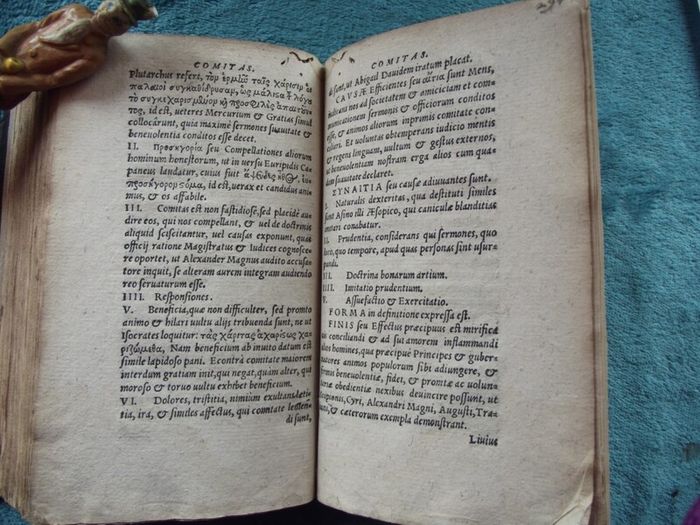 COMITAS.
Plutarchus refert, τὸν ἑρμῆν ταῖς χάρισιν οἱ
παλαιοὶ συγκαθίδρυσαν, ὡς μάλιστα τοῦ λόγου
τὸ κεχαρισμένον καὶ προσφιλὲς ἀπαιτοῦν-
τος, id est, veteres Mercurium & Gratias simul
collocârunt, quia maximè sermones suauitate &
beneuolentia conditos esse decet.
II. Προσηγορία seu Compellationes aliorum
hominum honestorum, ut in versu Euripidis Ca-
paneus laudatur, cuius fuit ἀψευδὲς ἦθος,
& εὐπροσήγορον στόμα, id est, uerax et candidus ani-
mus, & os affabile.
III. Comitas est non fastidiosè, sed placidè au-
dire eos, qui nos compellant, & uel de doctrinis
aliquid sciscitantur, vel causas exponunt, quas
officij ratione Magistratus & Iudices cognosce-
re oportet, ut Alexander Magnus audito accusa-
tore inquit, se alteram aurem integram audiendo
reo seruaturum esse.
IIII. Responsiones.
V. Beneficia, quæ non difficulter, sed promto
animo & hilari uultu alijs tribuenda sunt, ne ut
Isocrates loquitur: τὰς χάριτας ἀχαρίστως χα-
ριζώμεθα, Nam beneficium ab inuito datum est
simile lapidoso pani. Econtrà comitate maiorem
interdum gratiam init, qui negat, quàm alter, qui
moroso & toruo uultu exhibet beneficium.
VI. Dolores, tristitia, nimium exultans læti-
tia, ira, & similes affectus, qui comitate leniendi
di sunt,
COMITAS.
di sunt, ut Abigail Dauidem iratum placat.
CAVSÆ Efficientes seu αἴτια sunt Mens,
iudicans nos ad societatem & amicitiam et com-
municationem sermonis & officiorum conditos
esse, & animos aliorum inprimis comitate conci-
liari. Et voluntas obtemperans iudicio mentis
& regens linguam, uultum & gestus externos,
ut beneuolentiam nostram erga alios cum qua-
dam suauitate declaret.
SYNAITIA seu causæ adiuuantes sunt.
I. Naturalis dexteritas, qua destituti similes
sunt Asino illi Æsopico, qui caniculæ blanditias
imitari conabatur.
II. Prudentia, considerans qui sermones, quo
loco, quo tempore, apud quas personas sint usur-
pandi.
III. Doctrina bonarum artium.
IIII. Imitatio prudentum.
V. Assuefactio & Exercitatio.
FORMA in definitione expressa est.
FINIS seu Effectus præcipuus est mirificè
animos conciliandi & ad sui amorem inflammandi
homines, qua præcipuè Principes & guber-
natores animos populorum sibi adiungere, &
firmis beneuolentiæ, fidei, & promtæ ac volun-
tariæ obedientiæ nexibus deuincire possunt, ut
Scipionis, Cyri, Alexandri Magni, Augusti, Tra-
iani, & cæterorum exempla demonstrant.
Liuius